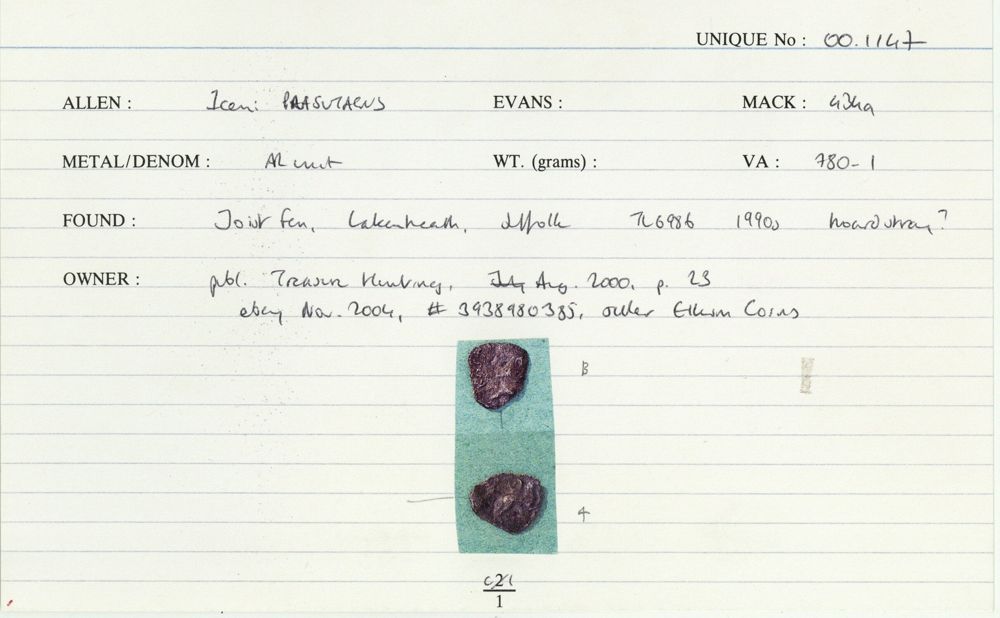 UNIQUE No : 00.1147
ALLEN : Iceni PRASUTAGUS EVANS : MACK : 434a
METAL/DENOM : AR unit WT. (grams) : VA : 780-1
FOUND : Joist Fen, Lakenheath, Suffolk TL6986 1990s hoard/stray?
OWNER : publ. Treasure Hunting, July Aug. 2000, p. 23
ebay Nov. 2004, # 3938980385, seller Elkim Coins
B
4
1